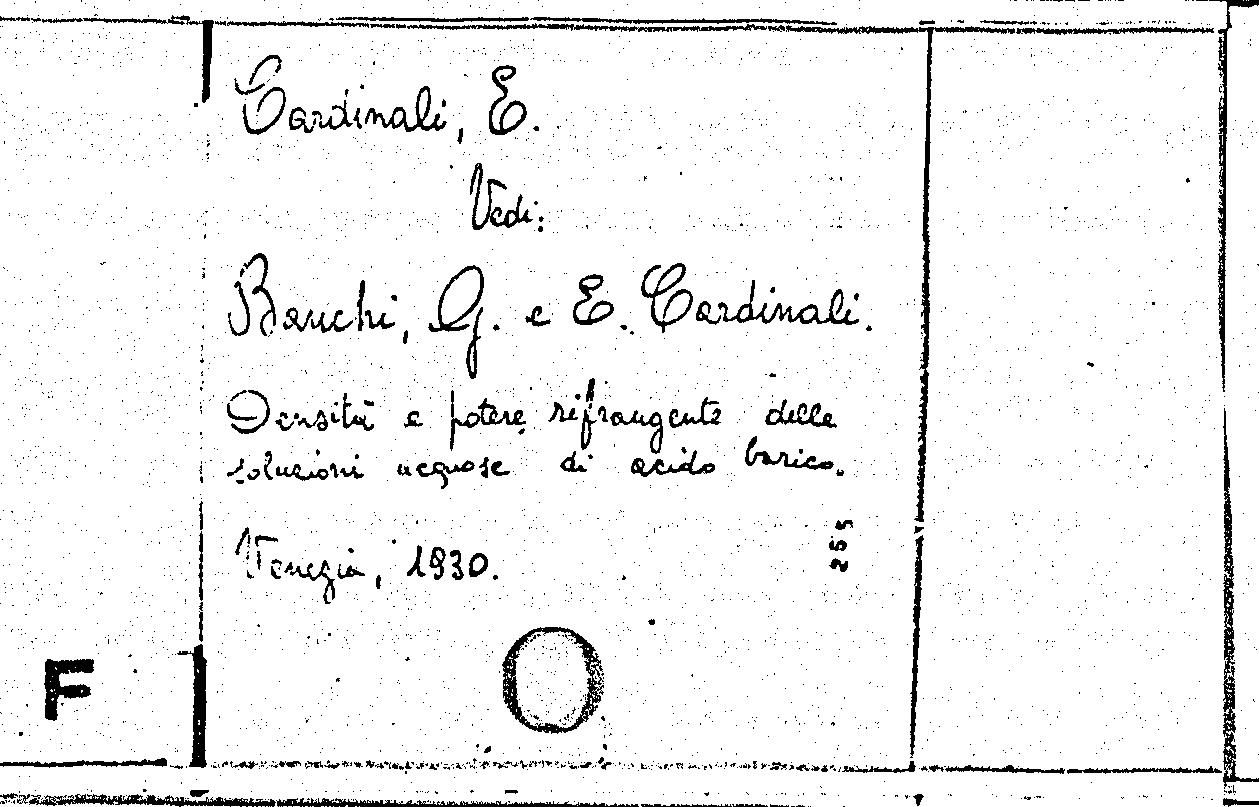 Cardinali, E.
Vedi:
Bauchi, G. e E. Cardinali.
Densità e potere rifrangente delle
soluzioni acquose di acido borico.
Venezia, 1930.
255
F